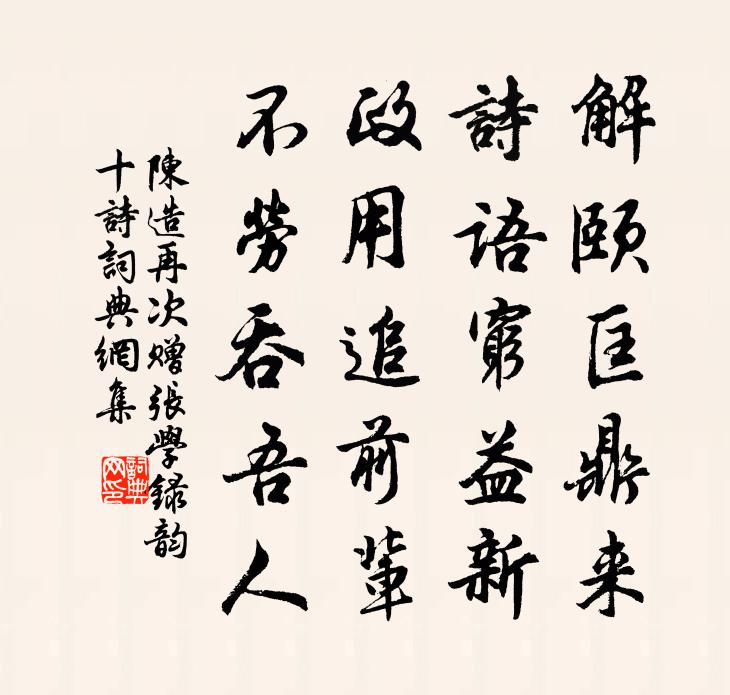 解頤匡鼎来
詩語窮益新
政用追前輩
不勞吞吾人
陳造再次赠張學録韵
十詩詞典網集
詞典
网印